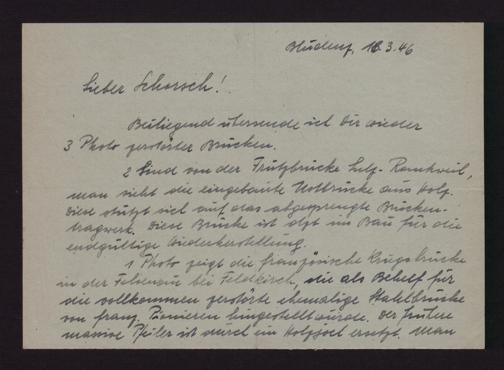 Bludenz, 16.3.46
Lieber Schorsch!
Beiliegend übersende ich dir wieder
3 Photo zerstörter Brücken.
2 Sind von der Frutzbrücke Sulz-Rankweil,
man sieht die eingebaute Notbrücke aus Holz.
Diese stützt sich auf das abgesprengte Brücken-
tragwerk. Diese Brücke ist dzt im Bau für die
endgültige Wiederherstellung.
1 Photo zeigt die französische Kriegsbrücke
in der Felsenau bei Feldkirch, die als Behelf für
die vollkommen zerstörte ehemalige Stahlbrücke
von franz. Pionieren hingestellt wurde. Der frühere
massive Pfeiler ist durch ein Holzjoch ersetzt. Man